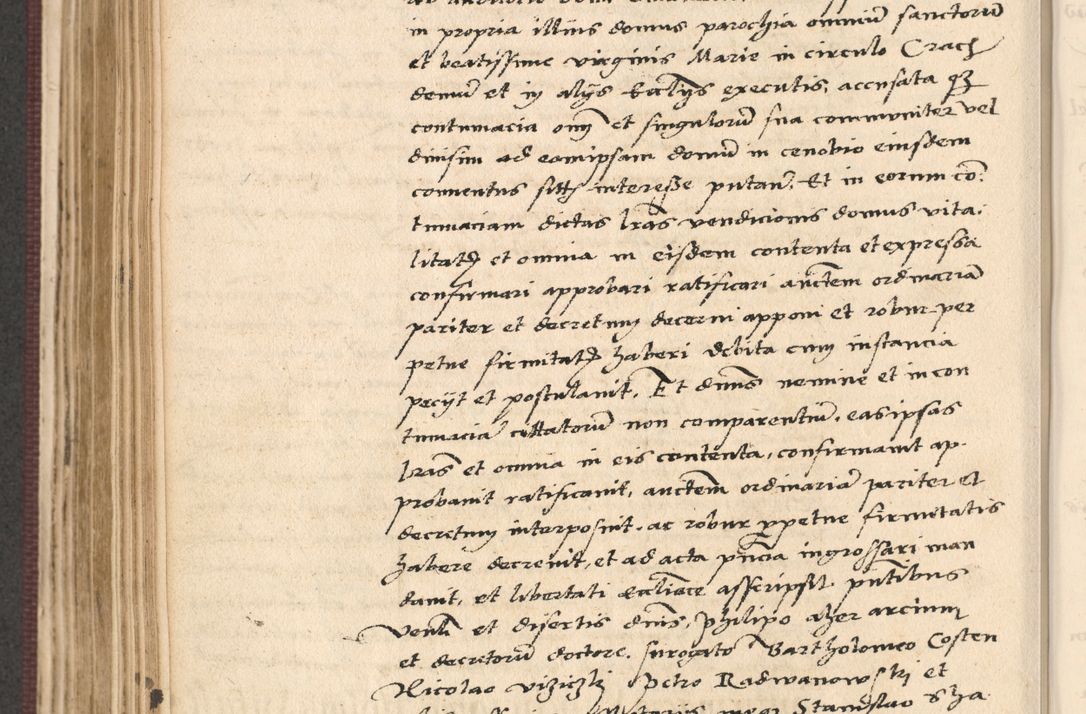 in propria illius domus parochia omniũ sanctorũ
et beatissime virginis Marie in circulo Crac
demũ et in alijs Ecclijs executis, accusata
contumacia omĩ et singulorũ sua communiter vel
diuisim ad eamipsam domũ in cenobio eiusdem
conuentus interesse putan. Et in eorum con
tumaciam dictas lras vendicionis domus vita.
litatis et omnia in eisdem contenta et expressa
confirmari approbari ratificari auctem ordinariã
pariter et decretum decerni apponi et robur per
petue firmitatis haberi debita cum instancia
pecijt et postulauit. Et dnus nemine et in con
tumaciã cittatorũ non comparentiũ, eas ipsas
lras et omnia in eis contenta, confirmauit ap-
probauit ratificauit, auctem ordinariã pariter et
decretum interposuit. ac robur ppetue firmitatis
habere decreuit, et ad acta pñcia ingrossari man
dauit, et libertati Ecclíace asscripsit pñtibus
Venli et disertis dnis, Philipo aher arcium
et decretorũ doctore. surogato Bartholomeo Costen
Nicolao Petro Radwanowski et
Stanislao Sha